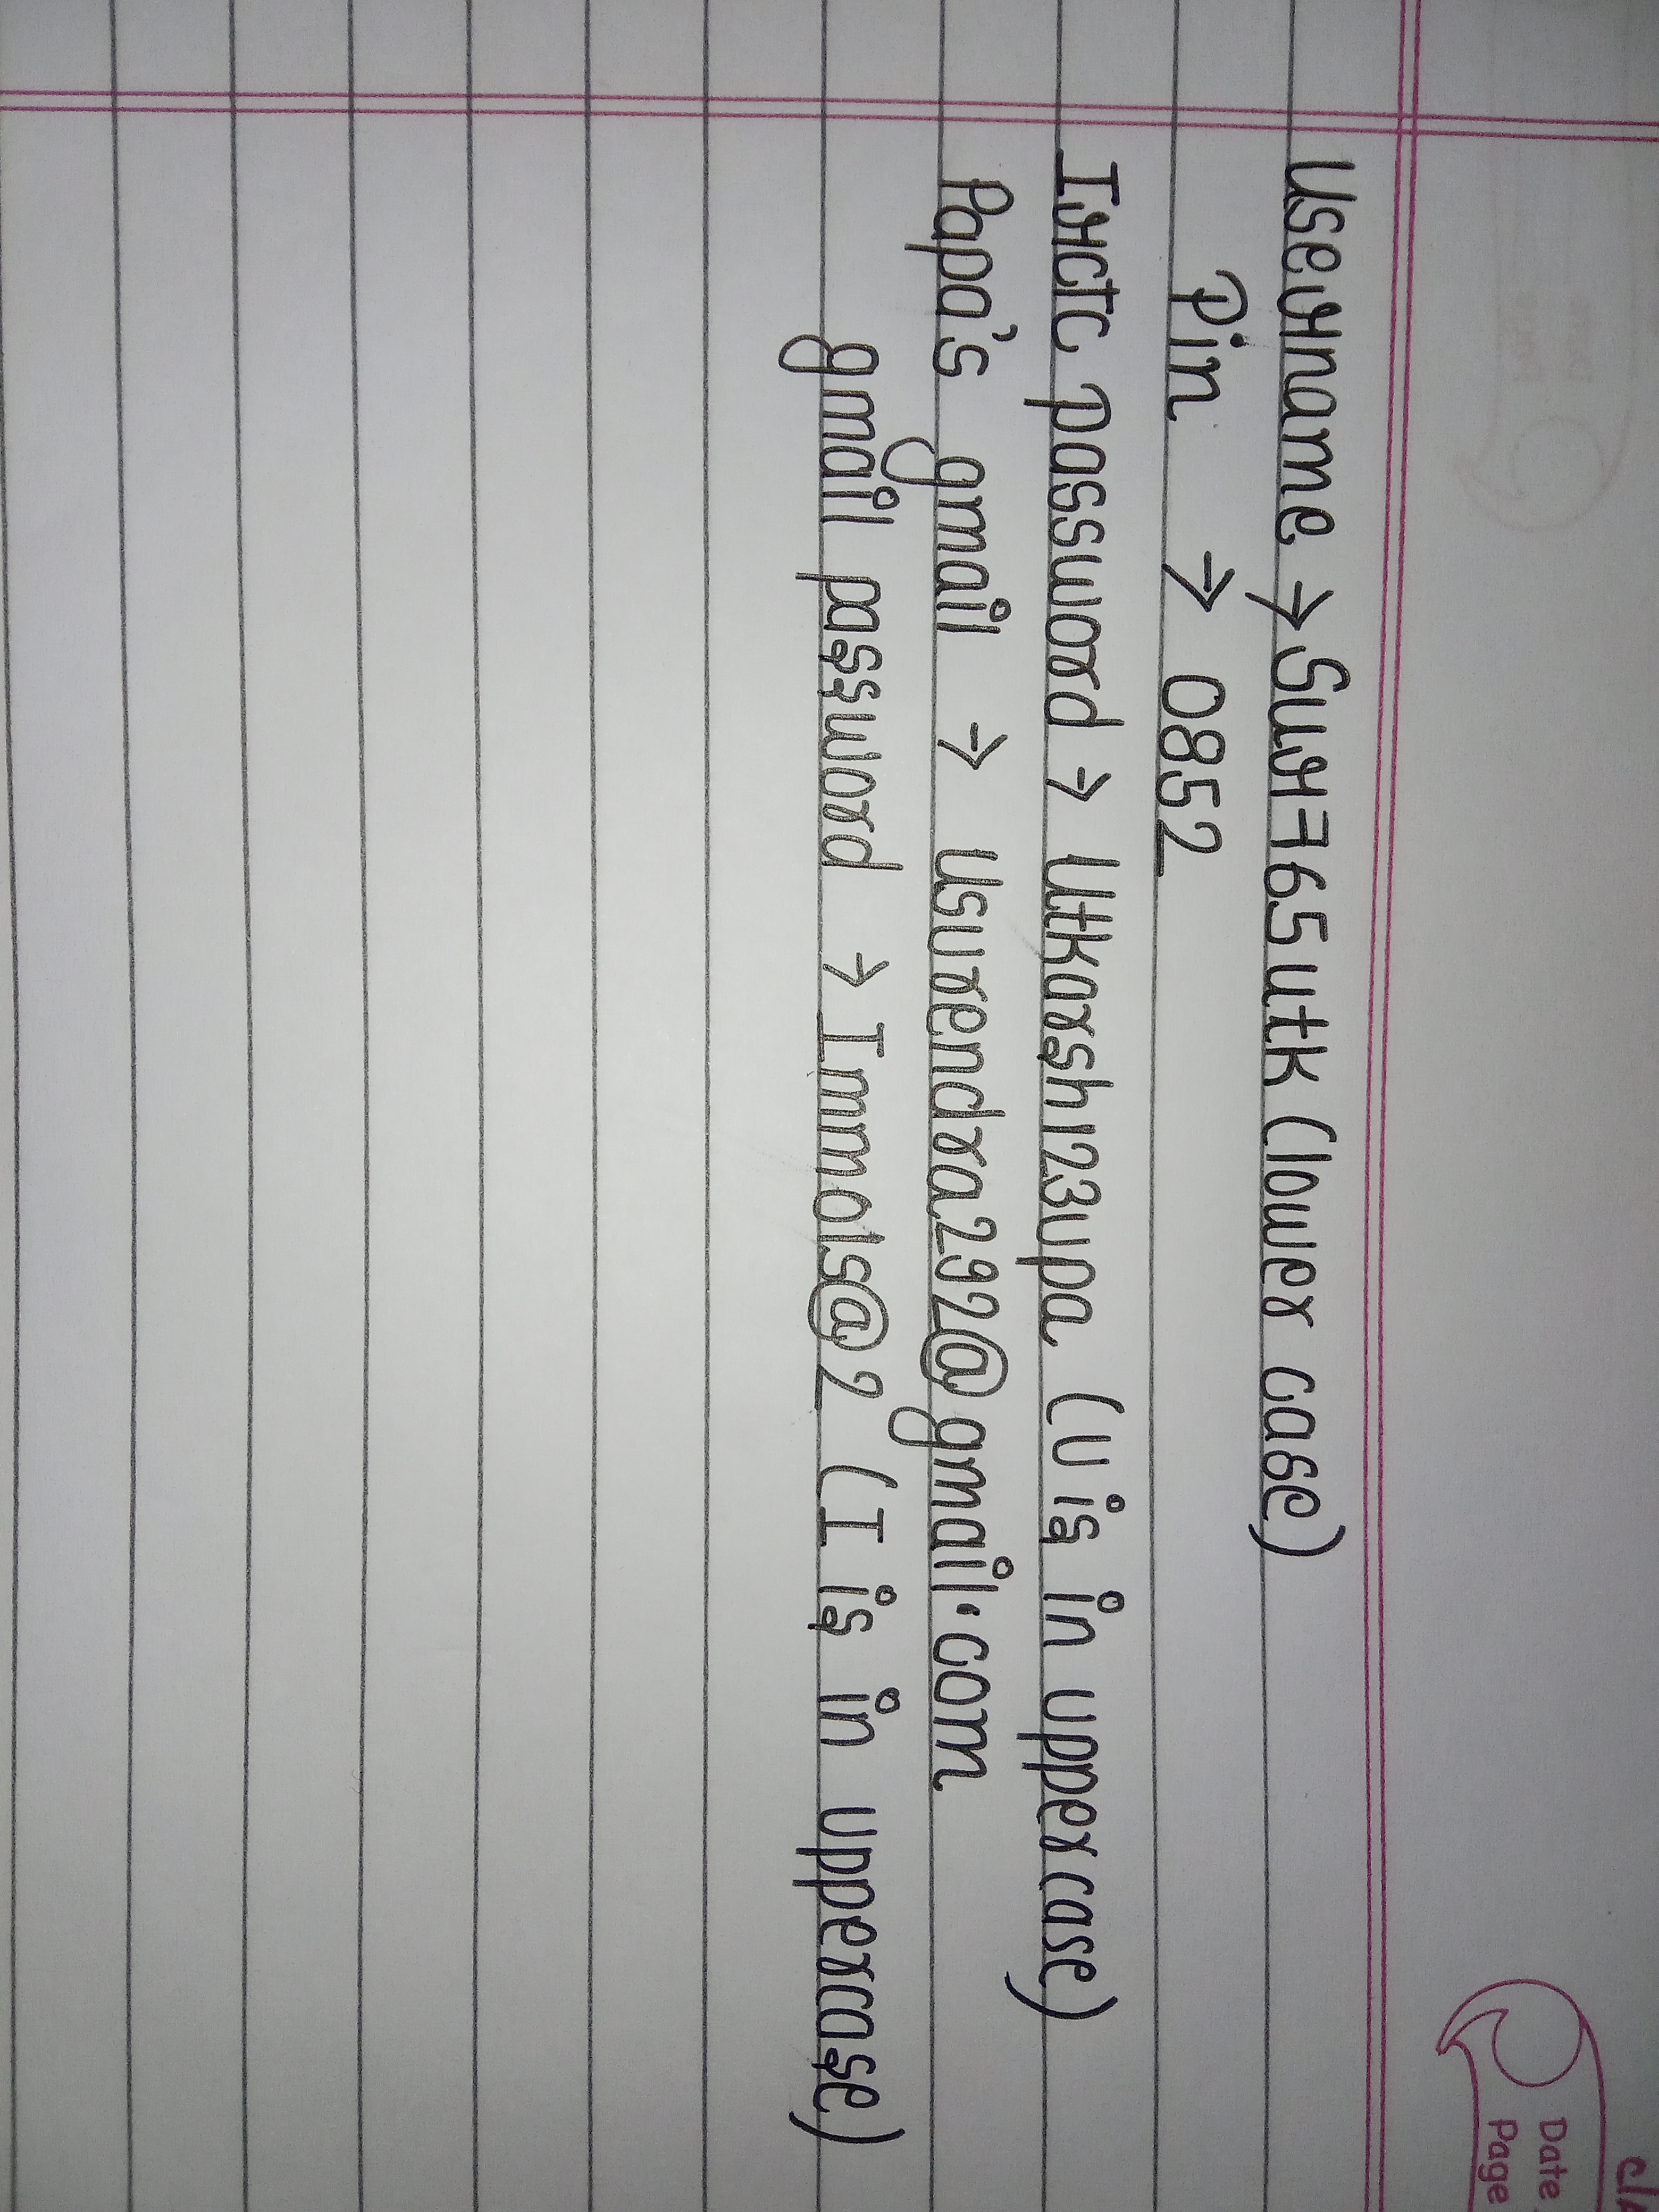 Date
Page
Username → Sur765utk (lower case)
Pin → 0852
IRCTC password → Utkarsh123upa (U is in uppercase)
Papa's gmail → usurendra292@gmail.com
gmail password → Immols@2 (I is in uppercase)